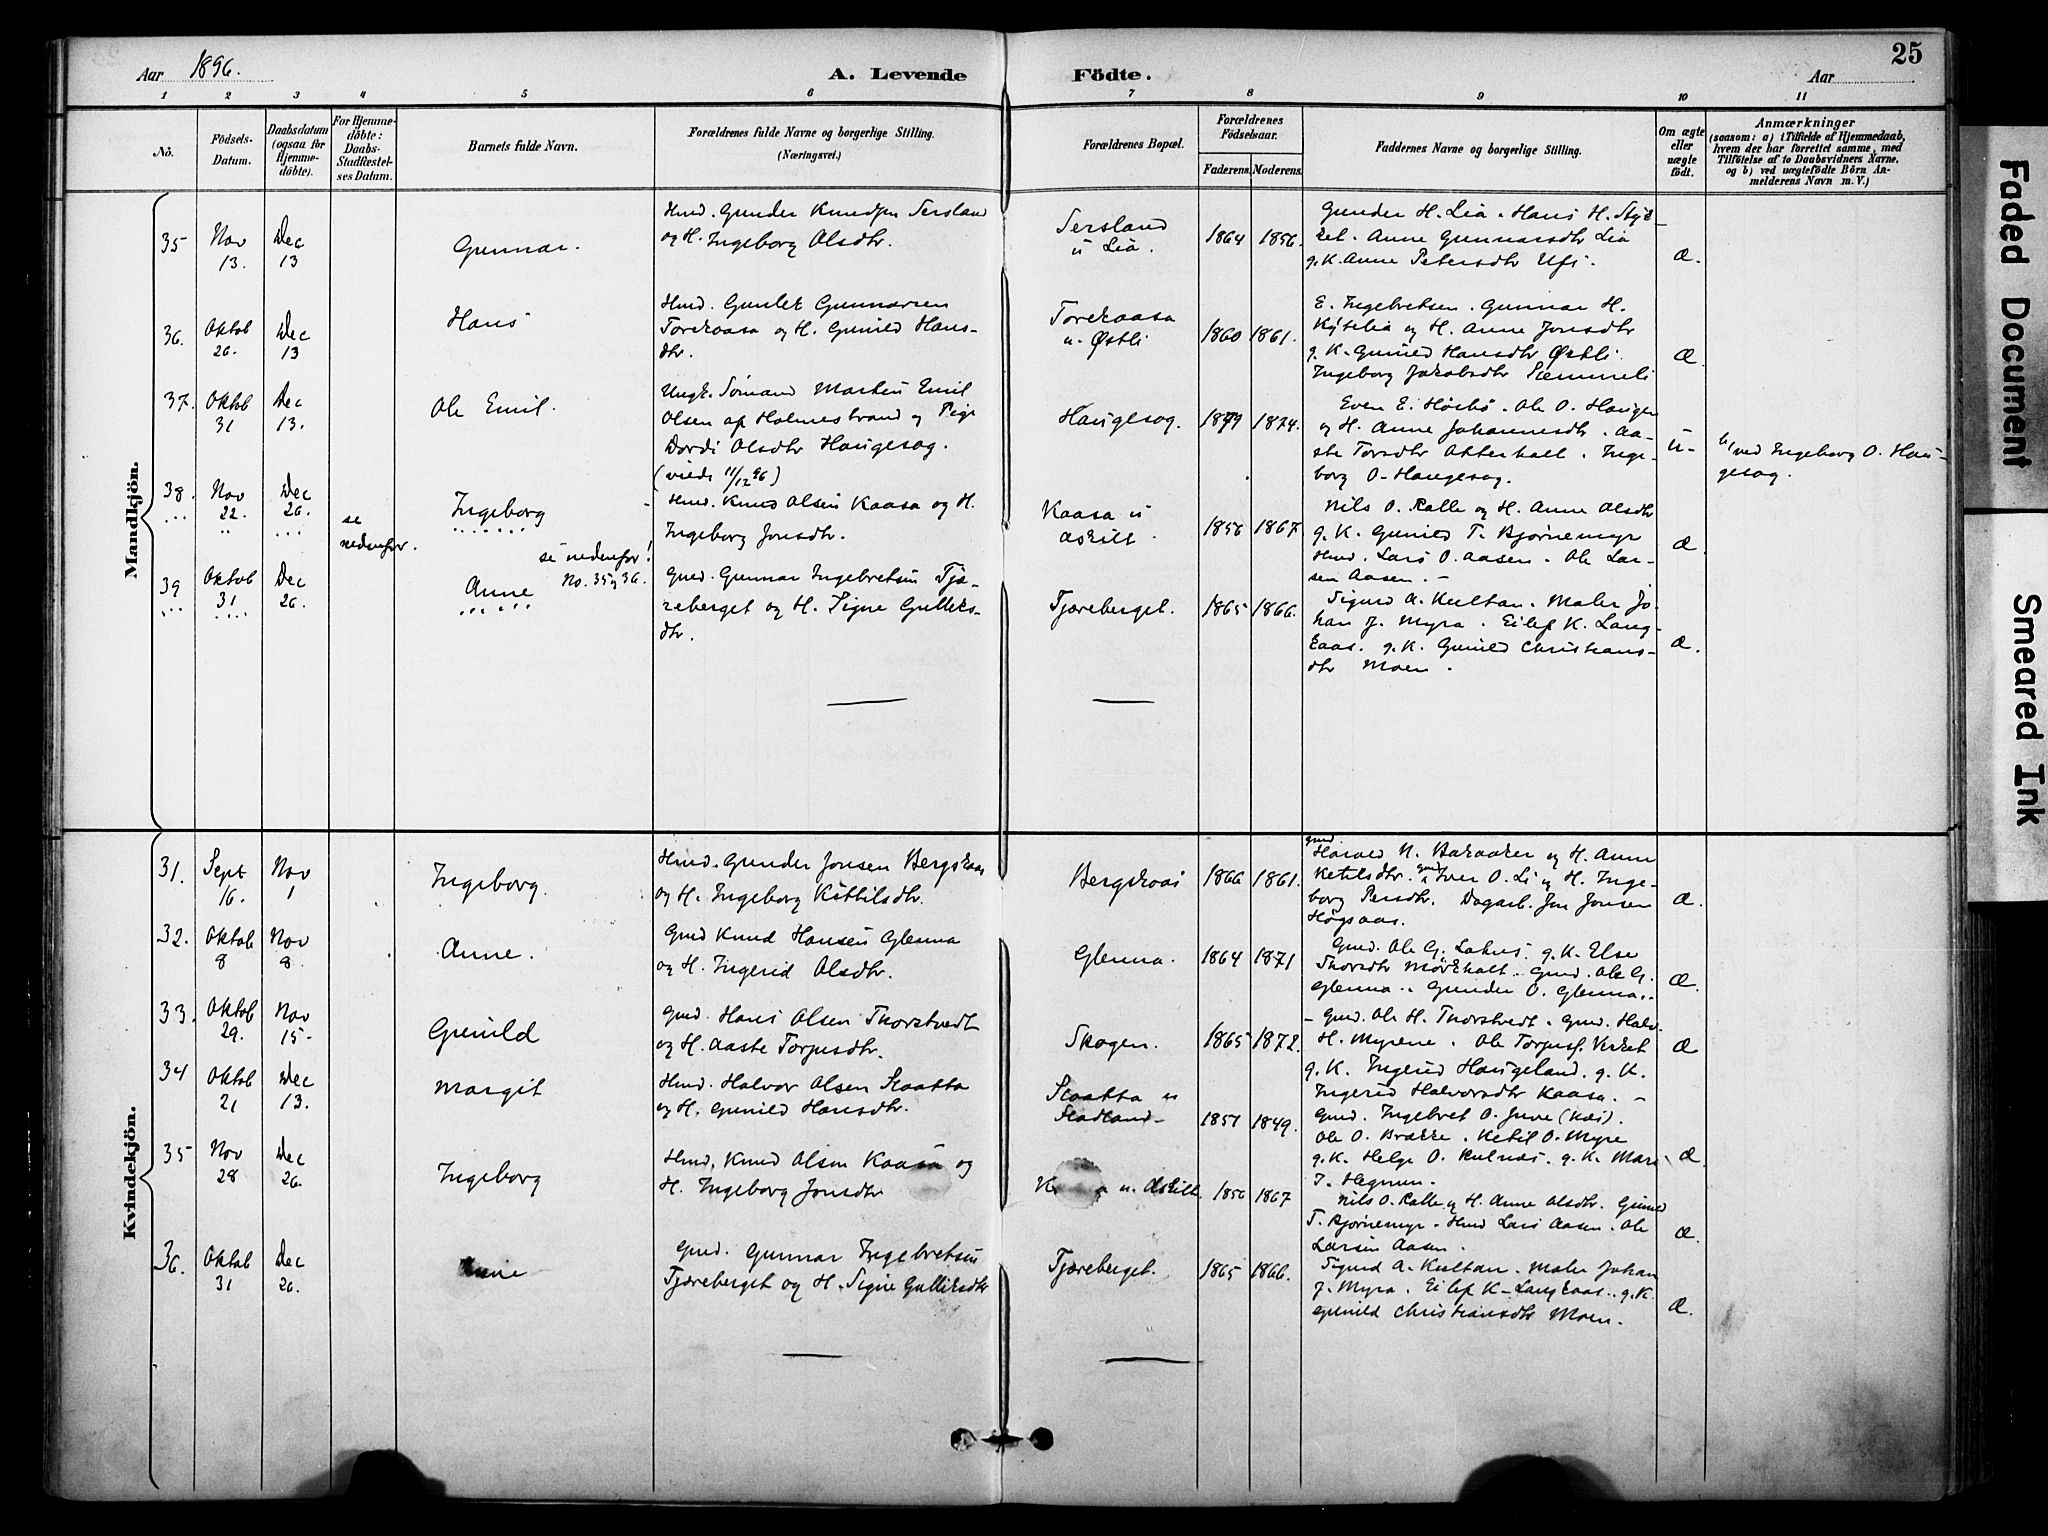 Aar 1896.
A. Levende Födte.
Aar
25
1 2 3 4 5 6 7 8 9 10 11
Nö.
Födsels-Datum.
Daabsdatum (ogsaa for Hjemme-döbte).
For Hjemme-döbte: Daabs-Stadfæstel-ses Datum.
Barnets fulde Navn.
Forældrenes fulde Navne og borgerlige Stilling. (Næringsvei.)
Forældrenes Bopæl.
Forældrenes Födselsaar.
Faderens. Moderens.
Faddernes Navne og borgerlige Stilling.
Om ægte eller uægte födt.
Anmærkninger (saasom: a) i Tilfælde af Hjemmedaab, hvem der har forrettet samme, med Tilföielse af to Daabsvidners Navne, og b) ved uægtefödte Börn An-melderens Navn m. V.)
Mandkjön.
35 Nov 13. Dec 13 Gunnar.
Hmd. Gunder Knudsen Sersland
og H. Ingeborg Olsdtr.
Sersland u Lia. 1864 1856.
Gunder H. Lia. Hans H.
Anne Gunnarsdtr Lia
g. K. Anne Petersdtr Ufs.
Æ.
36. Oktob 26. Dec 13 Hans
Hmd. Gunlek Gunnarsen
Torekaasa og H. Gunild Hans-
dtr.
Torekaasa u. Østli 1860 1861.
E. Ingebretsen. Gunnar H.
og H. Anne Jonsdtr
g. K. Gunild Hansdtr Østli.
Ingeborg Jakobsdtr
Æ
37. Oktob 31 Dec 13. Ole Emil.
Ungk. Sømand Martin Emil
Olsen af Holmestrand og Pige
Dordi Olsdtr Haugesag.
(viede 11/12 96)
Haugesag. 1879 1874.
Even E. Høibø. Ole O. Haugen
og H. Anne Johannesdtr. Aa-
ste Torsdtr Atterholt. Inge-
borg O. Haugesag.
u-
b/ ved Ingeborg O. Hau-
gesag.
38. Nov 22. Dec 26. se nedenfor. Ingeborg
Hmd. Knud Olsen Kaasa og H.
Ingeborg Jonsdtr.
Kaasa u Askilt. 1856 1867.
Nils O. Kalle og H. Anne Olsdtr
g. K. Gunild T. Bjørnemyr
Hmd. Lars O. Aasen. Ole Lar-
sen Aasen.
Æ
se nedenfor!
No. 35 og 36.
39 Oktob 31 Dec 26. Anne
Gmd. Gunnar Ingebretsen Tjæ-
reberget og H. Signe Gulleks-
dtr.
Tjæreberget. 1865 1866.
Sigurd A. Kultan. Maler Jo-
han J. Myra. Eilef K. Lang-
kaas. g. K. Gunild Christians-
dtr Moen.
Æ.
Kvindekjön.
31. Sept 16. Nov 1 Ingeborg.
Hmd. Gunder Jonsen Bergskaas
og H. Ingeborg Kittilsdtr.
Bergskaas 1866 1861.
gmd. Harald N. Bakaaker og H. Anne
Ketilsdtr. gmd Iver O. Li og H. Inge-
borg Persdtr. Dagarb. Jon Jonsen
Høgsaas.
Æ.
32. Oktob 8 Nov 8. Anne.
Gmd Knud Hansen Glenna
og H. Ingerid Olsdtr.
Glenna. 1864 1871
Gmd. Ole G. Lahus. g. K. Else
Thorsdtr Mørkholt. Gmd. Ole G.
Glenna. Gunder O. Glenna.
Æ.
33. Oktob 29. Nov 15- Gunild
Gmd. Hans Olsen Thorstvedt
og H. Aaste Torjusdtr.
Skogen. 1865 1872.
Gmd. Ole H. Thorstvedt. Gmd. Halv.
H. Myrene. Ole Torjusf. Verket
g. K. Ingerid Haugeland. g. K.
Ingerid Halvorsdtr Kaasa.
Æ
34 Oktob 21 Dec 13. Margit
Hmd. Halvor Olsen Skaatta
og H. Gunild Hansdtr.
Skaatta u 1851 1849.
Gmd. Ingebret O. Juve
Ole O. Brække. Ketil O. Myre
g. K. Helge O. g. K. Mari
J. Hegnun.
Æ.
35 Nov 28 Dec 26. Ingeborg
Hmd. Knud Olsen Kaasa og
H. Ingeborg Jonsdtr
u. Askilt. 1856 1867
Nils O. Kalle og H. Anne Olsdtr. Gunild
T. Bjørnemyr. Hmd Lars Aasen. Ole
Larsen Aasen.
Æ.
36. Oktob 31 Dec 26. Anne
Gmd. Gunnar Ingebretsen
Tjæreberget og H. Signe Gulleksdtr
Tjæreberget. 1865 1866.
Sigurd A. Kultan. Maler Johan
J. Myra. Eilef K. Langkaas. g. K.
Gunild Christiansdtr Moen.
Æ.
Faded Document
Smeared Ink